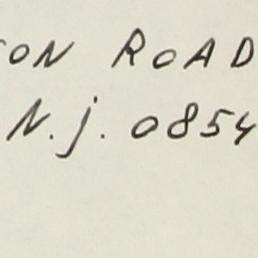 ON ROAD
N.J. 0854